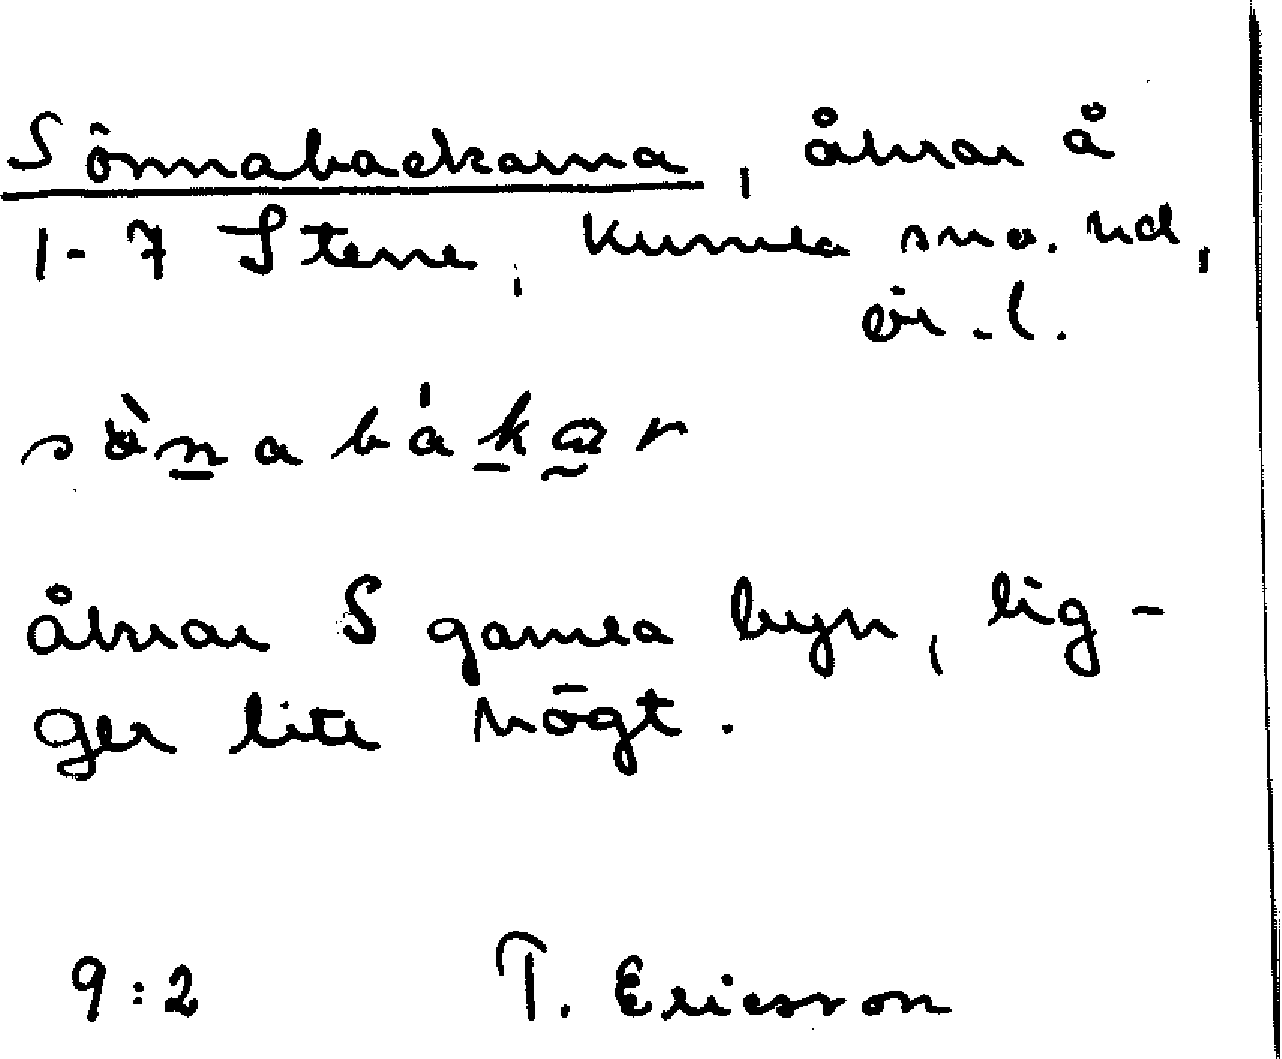 Sönnabackarna, åkrar å
1-7 Stene, Kumla sn o. hd,
ör. l.
sò̈nabákar
åkrar S gamla byn, lig-
ger lite högt.
9:2 T. Ericsson